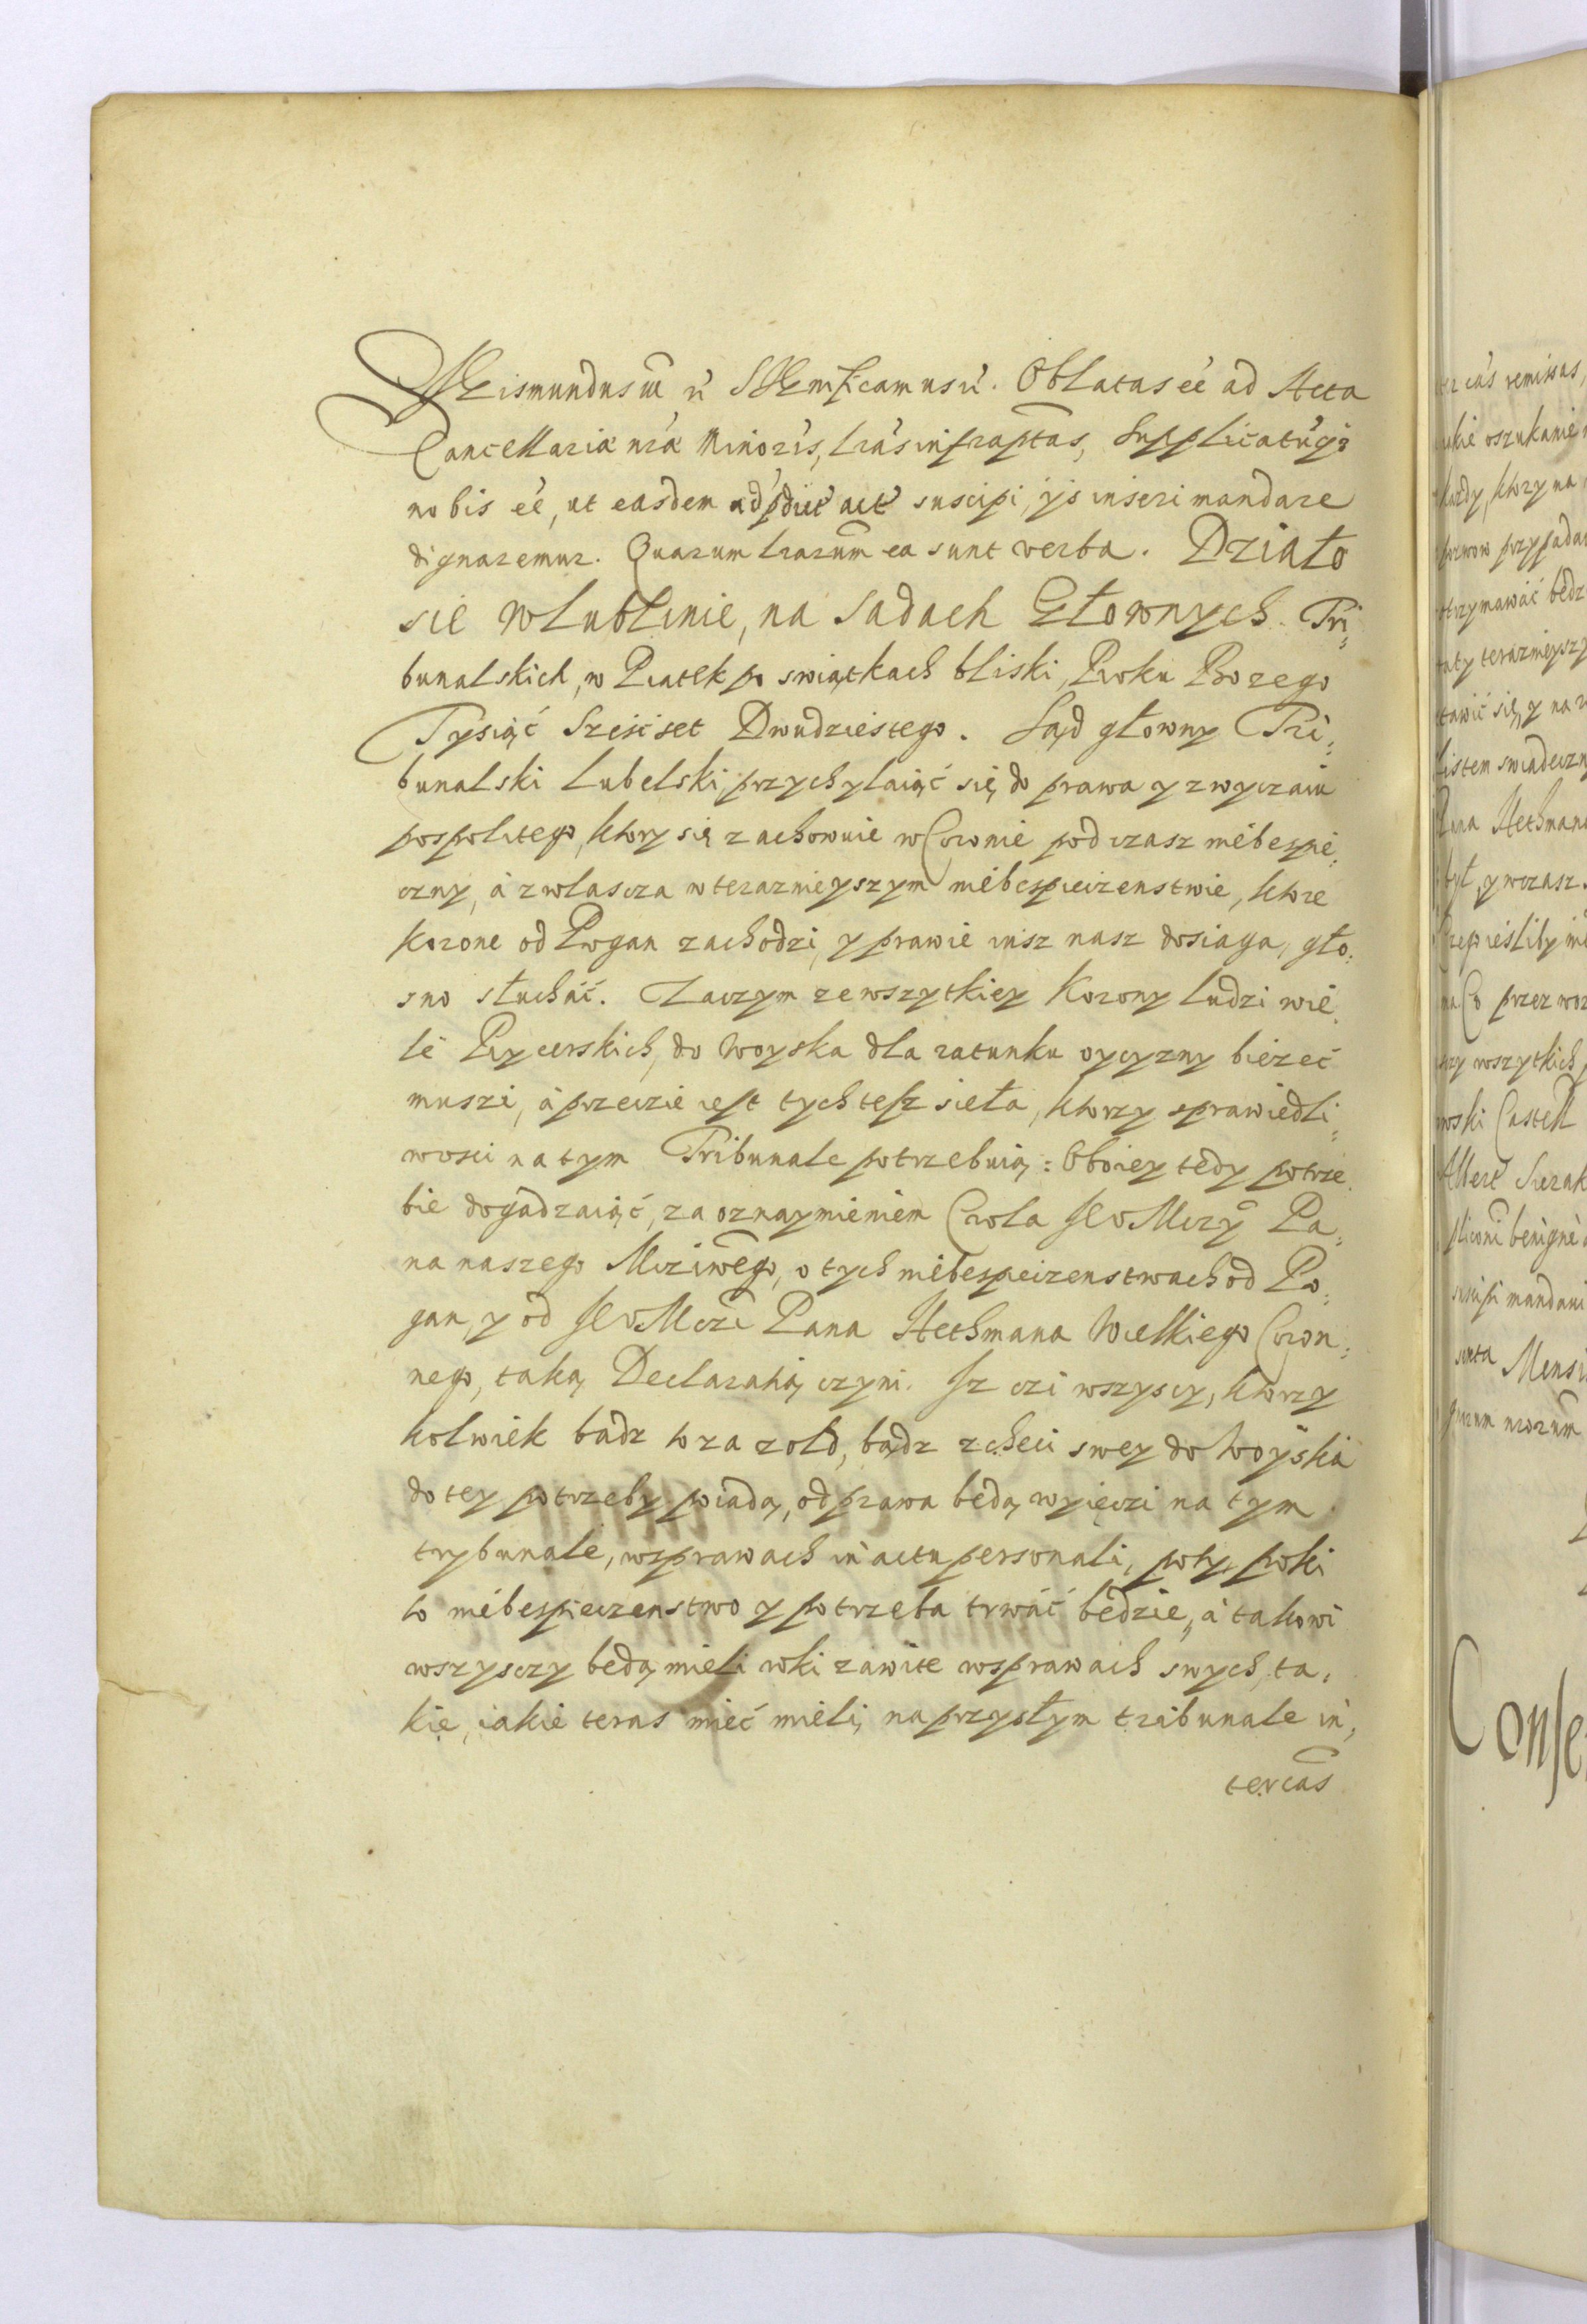 Sigismundus III etc. Significamus etc. Oblatas eē ad Acta
Cancellariæ nræ Minoris, lras infrascptas, Supplicatūq̨
nobis eē, ut easdem ad pdict act suscipi, ijs inseri mandare
dignaremur. Quarum lrarum ea sunt verba. Działo
sie w Lublinie, na Sadach Głownych Tri=
bunalskich, w Piatek po swiątkach bliski, Roku Bozego
Tysiąć Sześćset Dwudziestego. Sąd głowny Tri=
bunalski Lubelski, przychylaiąć się, do prawa y zwyczaiu
pospolitego, ktory się zachowuie w Coronie pod czasz niebezpie=
czny, à zwlascza w teraznieyszym niebespieczenstwie, ktore
Korone od Pogan zachodzi, y prawie iusz nasz dosiaga, gło=
sno słucháć. Zaczym ze wszytkiey Korony ludzi wie=
le Rycerskich, do Woyska dla ratunku oyczyzny bieżeć
muszi, à przeczie iest tych tesz sieła, ktorzy sprawiedli=
wosci na tym Tribunale potrzebuią: Oboiey tedy potrze=
bie dogadzaiąć, za oznaymieniem Crola Je° Mczi Pa=
na naszego Mcziwego, o tych niebespieczenstwach od Po=
gan, y od Je° Mczi Pana Hethmana Wielkiego Coron=
nego, taką Declaratią czyni. Jz czi wszyscy, ktorzy
kolwiek badz to za zold, bądz z checi swey do Woyska
do tey potrzeby poiadą, od prawa bedą wyięczi na tym
trybunale, w sprawach in actu personali, poty poki
to niebespieczenstwo y potrzeba trwáć będzie, à takowi
wszysczy bedą mieli roki zawite w sprawach swych, ta=
kie, iakie teras mieć mieli, na przysłym tribunale in=
ter cās

ter cās remissas,
oszukanie
każdy, ktory na
przypada
otrzymawáć bedz
teraznieyszy
stawić się, y na
listem swiadeczny
Pana Hethmana
był, y w czasz
przez woz
przy wszytkich
Castell
benigne
suscipi mandavi
Mensi
Conse